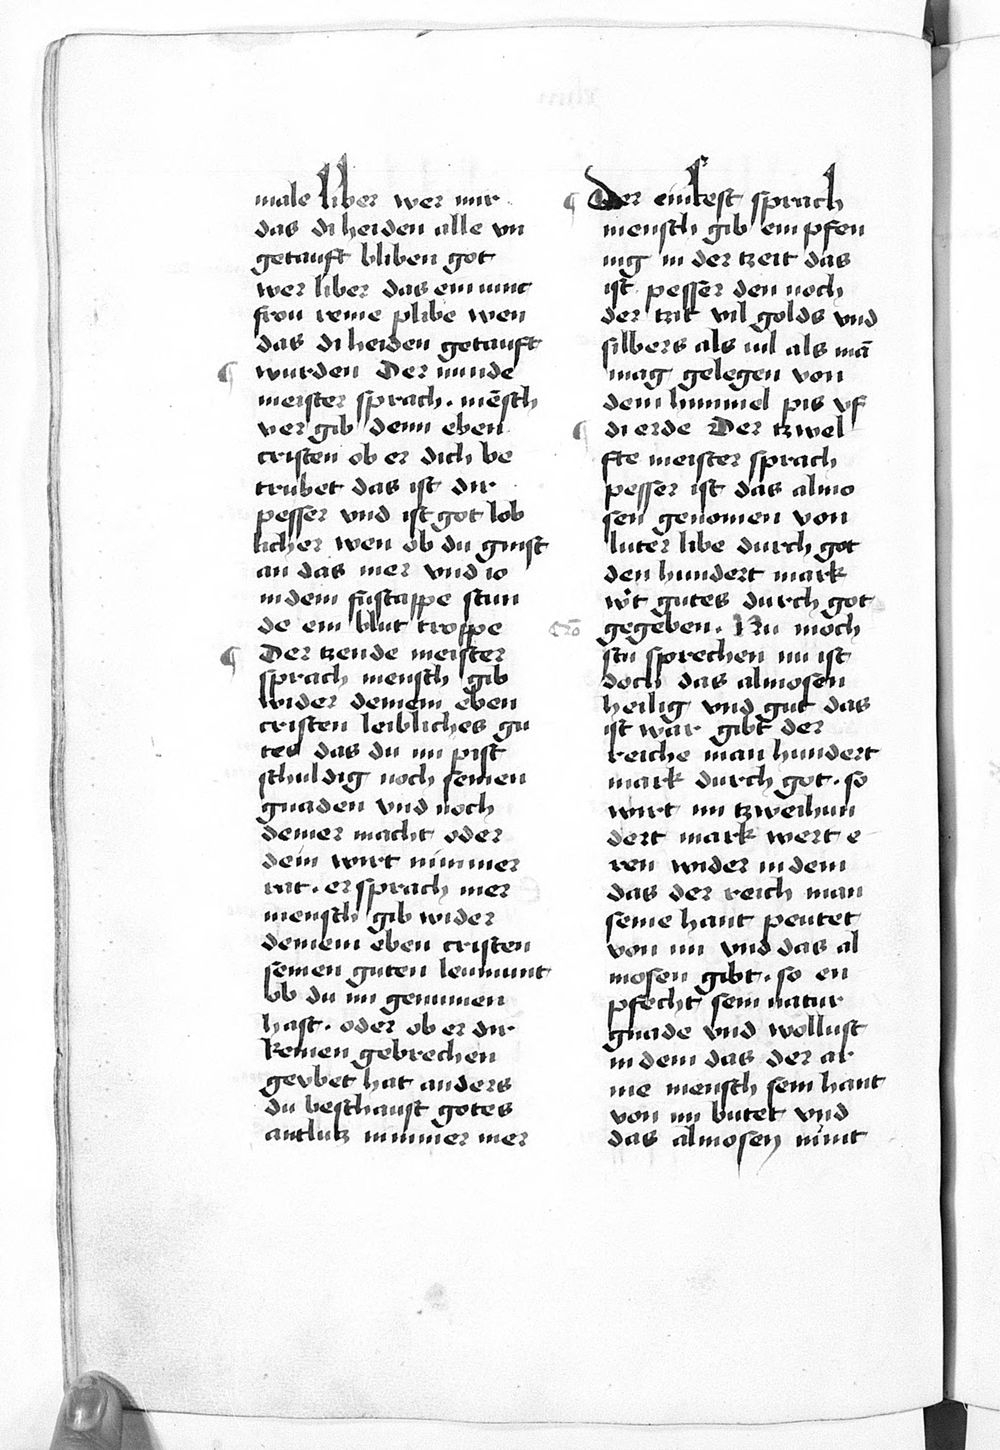 male liber wer mir
das di heiden alle vn
getauft bliben got
wer liber das ein iunc
frou reine plibe wen
das di heiden getauft
¶ wurden Der nunde
meister sprach . mēsch
vergib dem eben
cristen ob er dich be
trubet das ist dir
pesser vnd ist got lob
licher wen ob du ginst
an das mer vnd io
in dem fustappe stun
de ein blut troppe
¶ Der tzende meister
sprach mensch gib
wider deinem eben
cristen leibliches gu
tes das du im pist
schuldig noch seinen
gnaden vnd noch
deiner macht oder
dein wirt nimmer
rat . er sprach mer
mensch gib wider
deinem eben cristen
seinen guten leumunt
ob du im genumen
hast . oder ob er dir
keinen gebrechen
gevbet hat anders
du beschaust gotes
antlutz nimmer mer
¶ Der einlest sprach
mensch gib ein pfen
nig in der tzeit das
ist pesser den noch
der tzit vil golds vnd
silbers als uil als mā
mag gelegen von
dem himmel pis vf
¶ di erde Der tzwel
fte meister sprach
pesser ist das almo
sen genomen von
luter libe durch got
den hundert mark
wˀt gutes durch got
gegeben . Nu moch
stu sprechen nu ist
doch das almosen
heilig vnd gut das
ist war gibt der
reiche man hundert
mark durch got . so
wirt im tzweihun
dert mark wert e
ren wider in dem
das der reich man
seine hant peutet
von im vnd das al
mosen gibt . so en
pfecht sein natur
gnade vnd wollust
in dem das der ar
me mensch sein hant
von im butet vnd
das almosen nimt